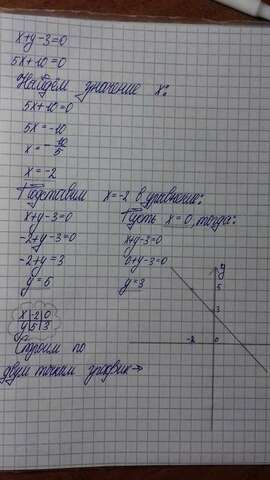 x+y-3=0
5x+10=0
Найдём значение x:
5x+10=0
5x=-10
x=-10/5
x=-2
Подставим x=-2 в уравнение:
x+y-3=0
-2+y-3=0
-2+y=3
y=5
Пусть x=0, тогда:
x+y-3=0
0+y-3=0
y=3
x -2 0
y 5 3
Строим по
двум точкам график→
y
5
3
-2 0